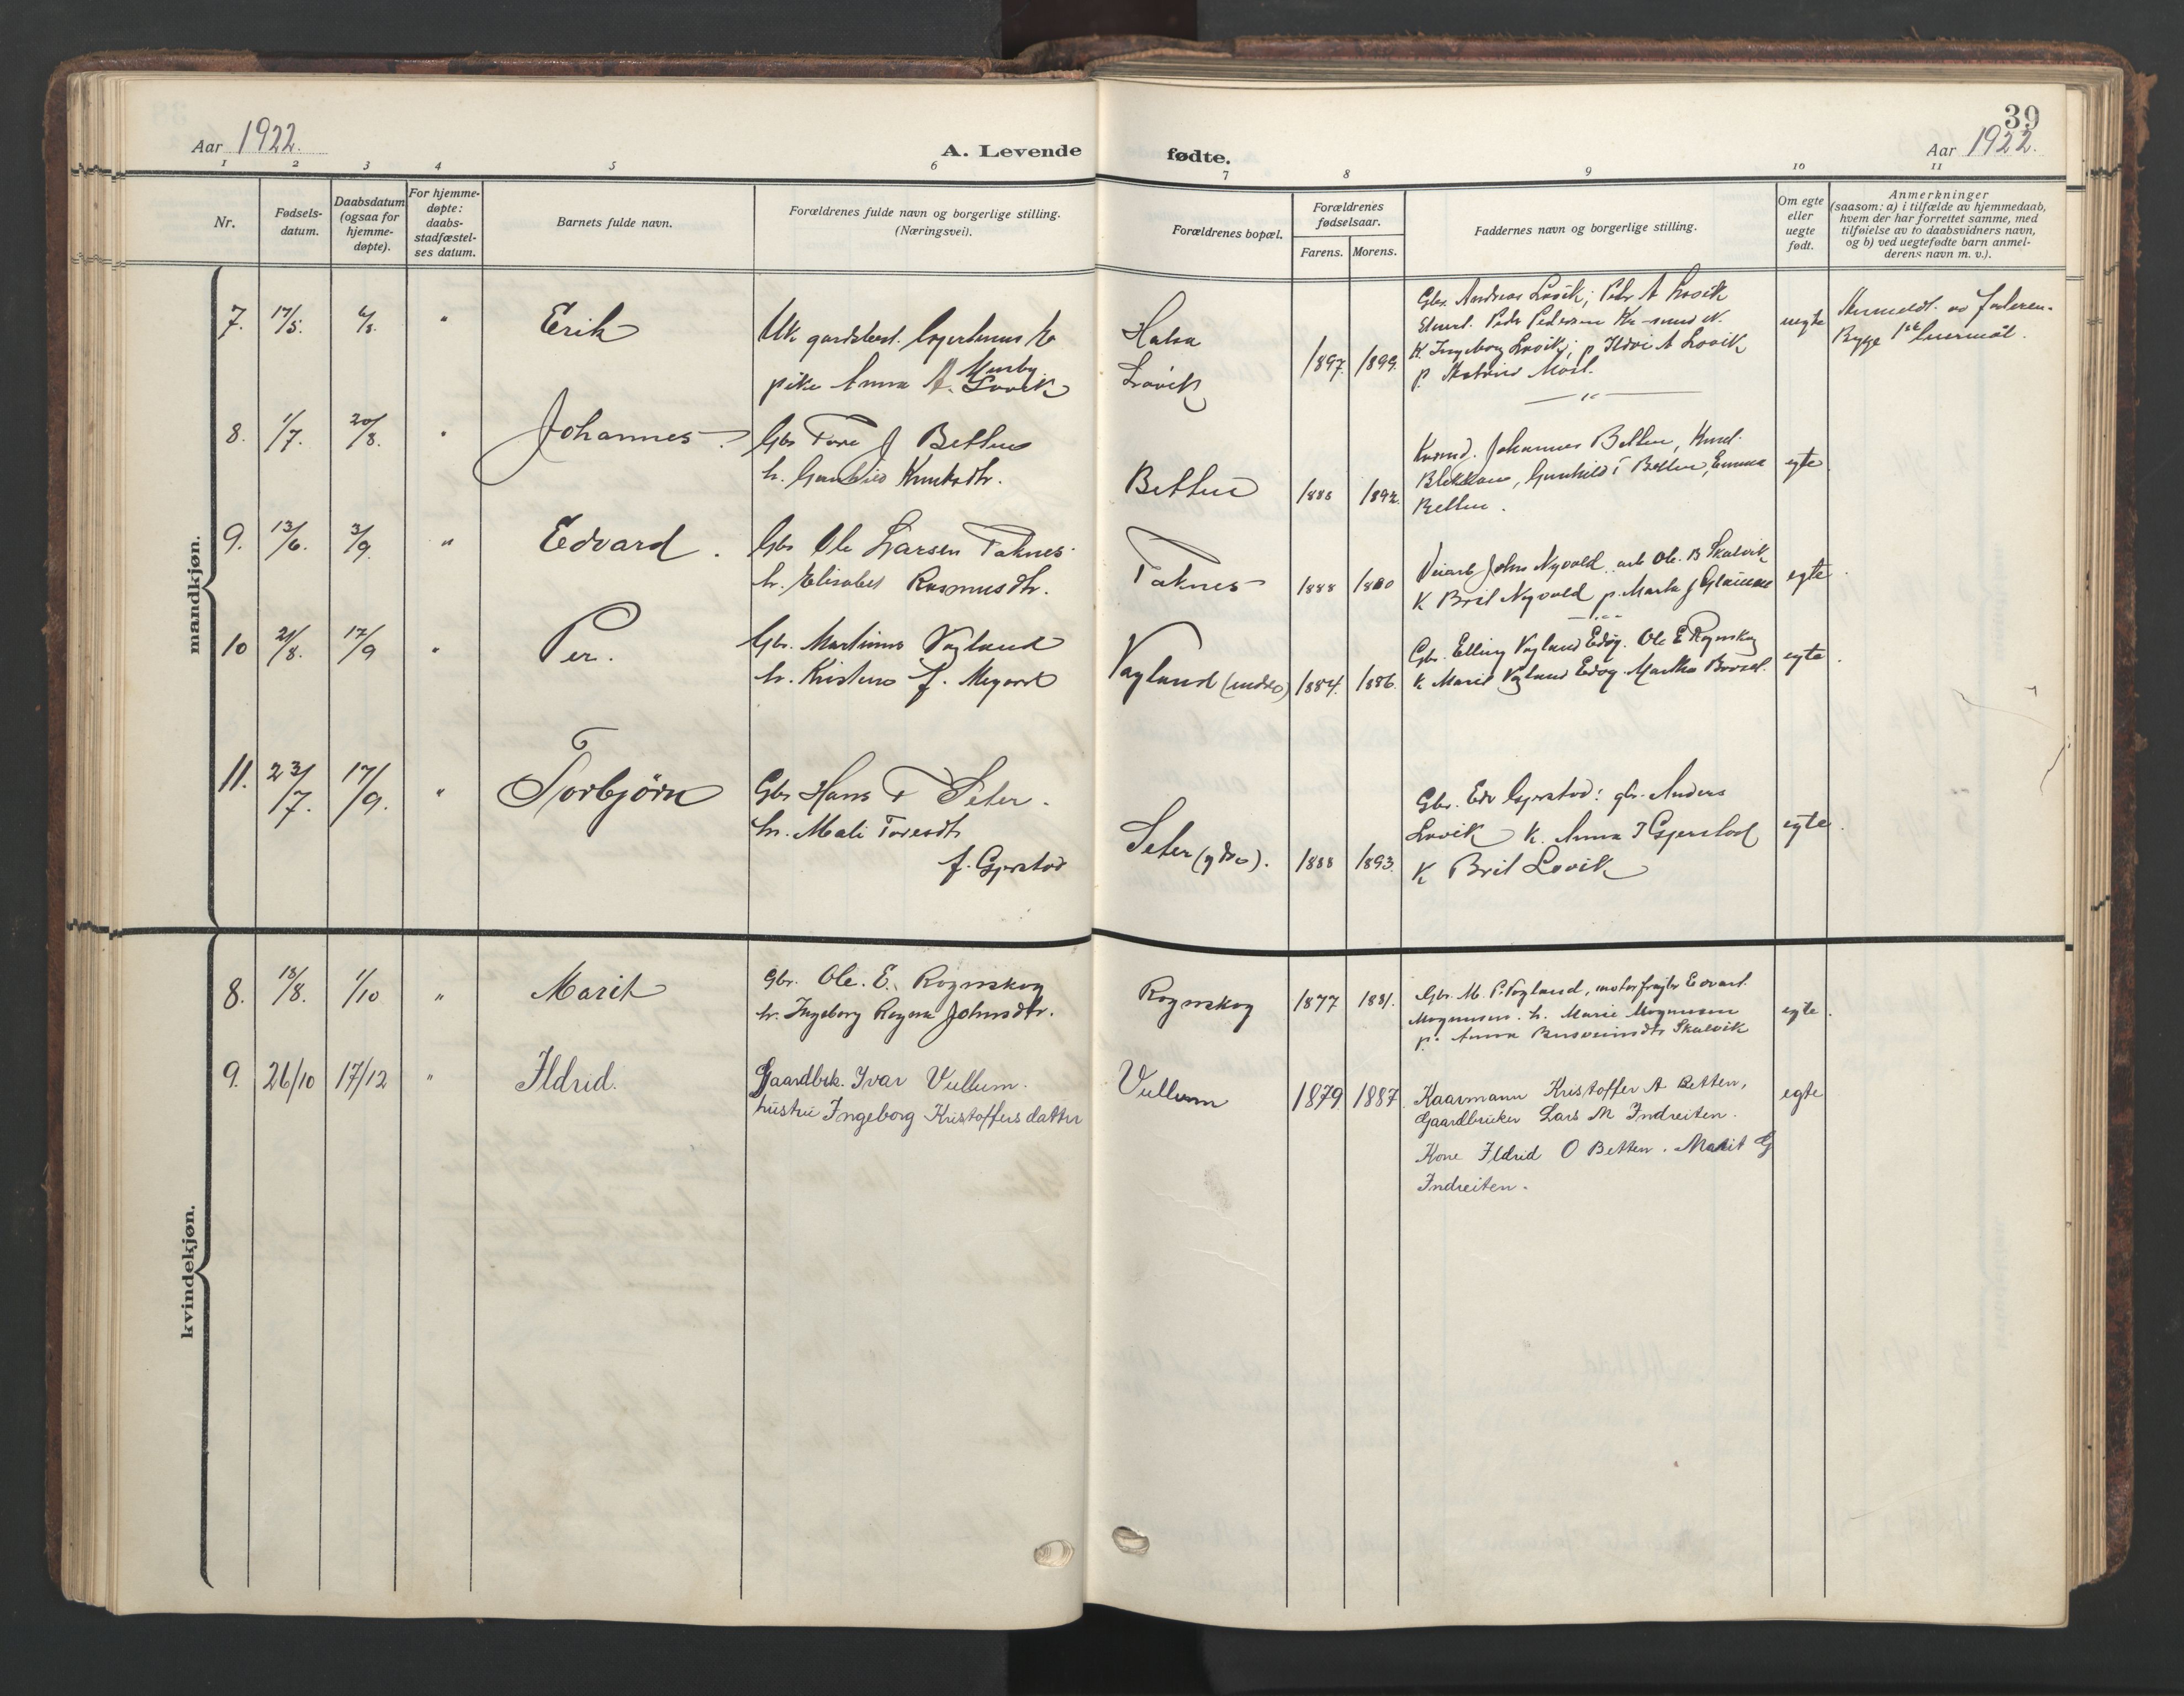 39
Aar 1922.
A. Levende
fødte.
Aar 1922.
1 2 3 4 5 6 7 8 9 10 11
Nr.
Fødsels-
datum.
Daabsdatum
(ogsaa for
hjemme-
døpte).
For hjemme-
døpte:
daabs-
stadfæstel-
ses datum.
Barnets fulde navn.
Forældrenes fulde navn og borgerlige stilling.
(Næringsvei).
Forældrenes bopæl.
Forældrenes
fødselsaar.
Farens. Morens.
Faddernes navn og borgerlige stilling.
Om egte
eller
uegte
født.
Anmerkninger
(saasom: a) i tilfælde av hjemmedaab,
hvem der har forrettet samme, med
tilføielse av to daabsvidners navn,
og b) ved uegtefødte barn anmel-
derens navn m. v.).
mandkjøn.
7. 17/5. 6/8. " Erik
Uk. gardsbest.
pike Anna A. Lovik
Halsa
Lovik
1897. 1899.
Gbr. Andreas Lovik; Petr A Lovik
Petr Pedersen Kr-sund N.
K. Ingeborg Lovik; p
A Lovik
p.
uegte
Anmeldt av faderen.
Begge 1ste leiermål.
8. 1/7. 20/8. " Johannes.
Gbr Tore J Betten
h. Gunhild Knutsdtr.
Betten
1892.
Johannes Betten, Knut
Gunhild T Betten, Emma
Betten.
egte
9. 13/6. 3/9. " Edvard.
Gbr Ole Larsen Taknes
h. Elisabet Rasmusdtr.
Taknes
1888
Veiarb John Nyvold, arb Ole. B Skalvik
K Bril Nyvold p. Marta J Glaimen
egte.
10 21/8. 17/9 " Per.
Gbr. Martinus Vagland
h. Kristine f.
Vagland (indre)
1884. 1886.
Gbr. Elling Vagland Edøy. Ole E Rognskog
K Marit Vagland Edøy. Martha
egte.
11. 23/7. 17/9. " Torbjørn
Gbr Hans T Seter.
h. Mali Toresdtr
f. Gjerstad
Seter (ydre).
1888 1893.
Gbr. Edv Gjerstad: gbr. Anders
Lovik K. Anna I Gjerstad
K Bril Lovik
egte.
kvindekjøn.
8. 18/8. 1/10 " Marit
Gbr. Ole. E. Rognskog
h. Ingeborg Johnsdtr.
Rognskog
1877 1881.
Gbr. M. P. Vagland, motorfragtr Edvart
Magnussen. h. Marie Magnussen
p. Anna Skalvik
egte.
9. 26/10 17/12 " Ildrid.
Gaardbrk. Ivar Vullum.
hustru Ingeborg Kristoffersdatter
Vullum
1879 1887
Kaarmann Kristoffer A Betten,
Gaardbruker Lars M Indreiten.
Kone Ildrid O Betten. Marit G
Indreiten.
egte